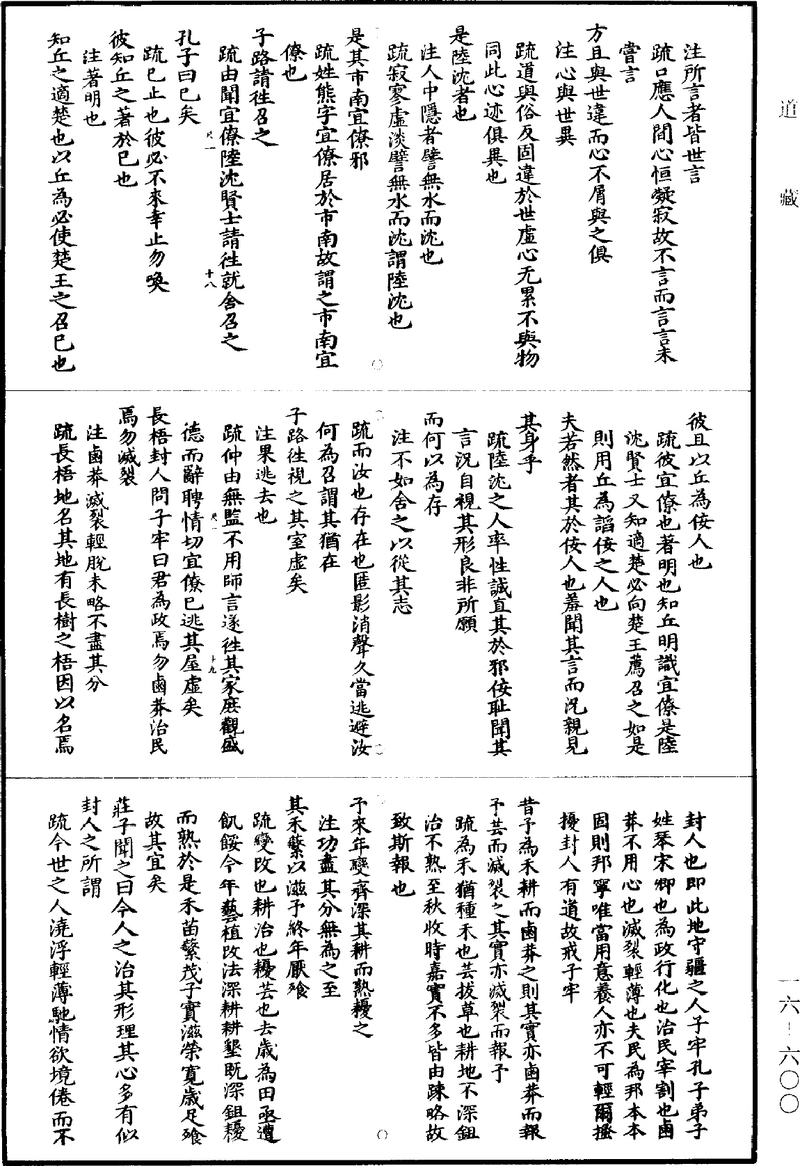 道藏
注所言者皆世言
疏口應人間心恒凝寂故不言而言言未
嘗言
方且與世違而心不屑與之俱
注心與世異
疏道與俗反固違於世虛心无累不與物
同此心迹俱異也
是陸沈者也
注人中隱者譬無水而沈也
疏寂寥虛淡譬無水而沈謂陸沈也
是其市南宜僚邪
疏姓熊字宜僚居於市南故謂之市南宜
僚也
子路請往召之
疏由聞宜僚陸沈賢士請往就舍召之
尺一
十八
孔子曰已矣
疏已止也彼必不來幸止勿喚
彼知丘之著於已也
注著明也
知丘之適楚也以丘為必使楚王之召已也
彼且以丘為佞人也
疏彼宜僚也著明也知丘明識宜僚是陸
沈賢士又知適楚必向楚王薦召之如是
則用丘為諂佞之人也
夫若然者其於佞人也羞聞其言而況親見
其身乎
疏陸沈之人率性誠直其於邪佞恥聞其
言況自視其形良非所願
而何以為存
注不如舍之以從其志
疏而汝也存在也匿影消聲久當逃避汝
何為召謂其猶在
子路往視之其室虛矣
注果逃去也
疏仲由無監不用師言遂往其家庶觀盛
尺一
十九
德而辭聘情切宜僚已逃其屋虛矣
長梧封人問子牢曰君為政焉勿鹵莽治民
焉勿滅裂
注鹵莽滅裂輕脫未略不盡其分
疏長梧地名其地有長樹之梧因以名焉
封人也即此地守疆之人子牢孔子弟子
姓琴宋卿也為政行化也治民宰割也鹵
莽不用心也滅裂輕薄也夫民為邦本本
固則邦寧唯當用意養人亦不可輕爾搔
擾封人有道故戒子牢
昔予為禾耕而鹵莽之則其實亦鹵莽而報
予芸而滅裂之其實亦滅裂而報予
疏為禾猶種禾也芸拔草也耕地不深鉏
治不熟至秋收時嘉實不多皆由踈略故
致斯報也
予來年變齊深其耕而熟耰之
注功盡其分無為之至
其禾蘩以滋予終年厭飱
疏變改也耕治也耰芸也去歲為田亟遭
飢餒今年藝植改法深耕耕墾既深鉏耰
而熟於是禾苗蘩茂子實滋榮寬歲足飱
故其宜矣
莊子聞之曰今人之治其形理其心多有似
封人之所謂
疏今世之人澆浮輕薄馳情欲境倦而不
一六-六〇〇